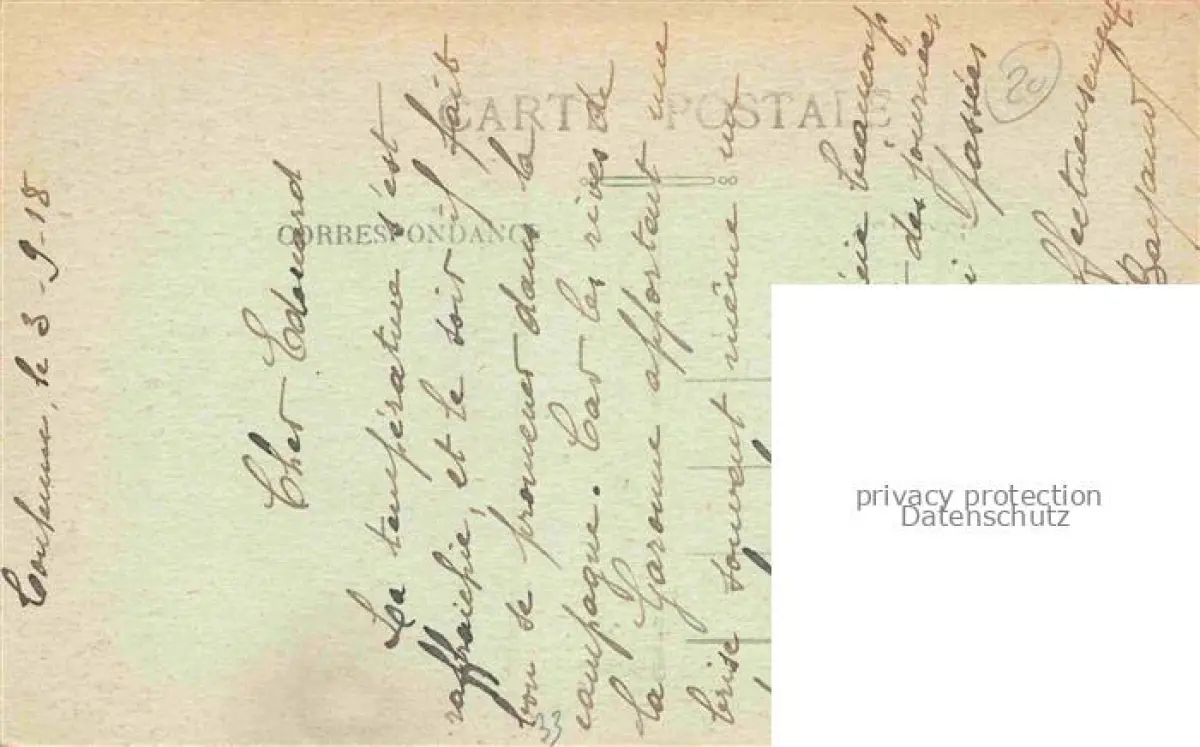 CARTE POSTALE
CORRESPONDANC
Toulouse, le 3-9-18
Cher Edouard
La température s'est
raffraichie, et le soir il fait
bon se promener dans la
campagne. Car les rives de
la Garonne apportent une
brise souvent même un
beaucoup
des journées
passées
ffectueusement
20
33
privacy protection
Datenschutz